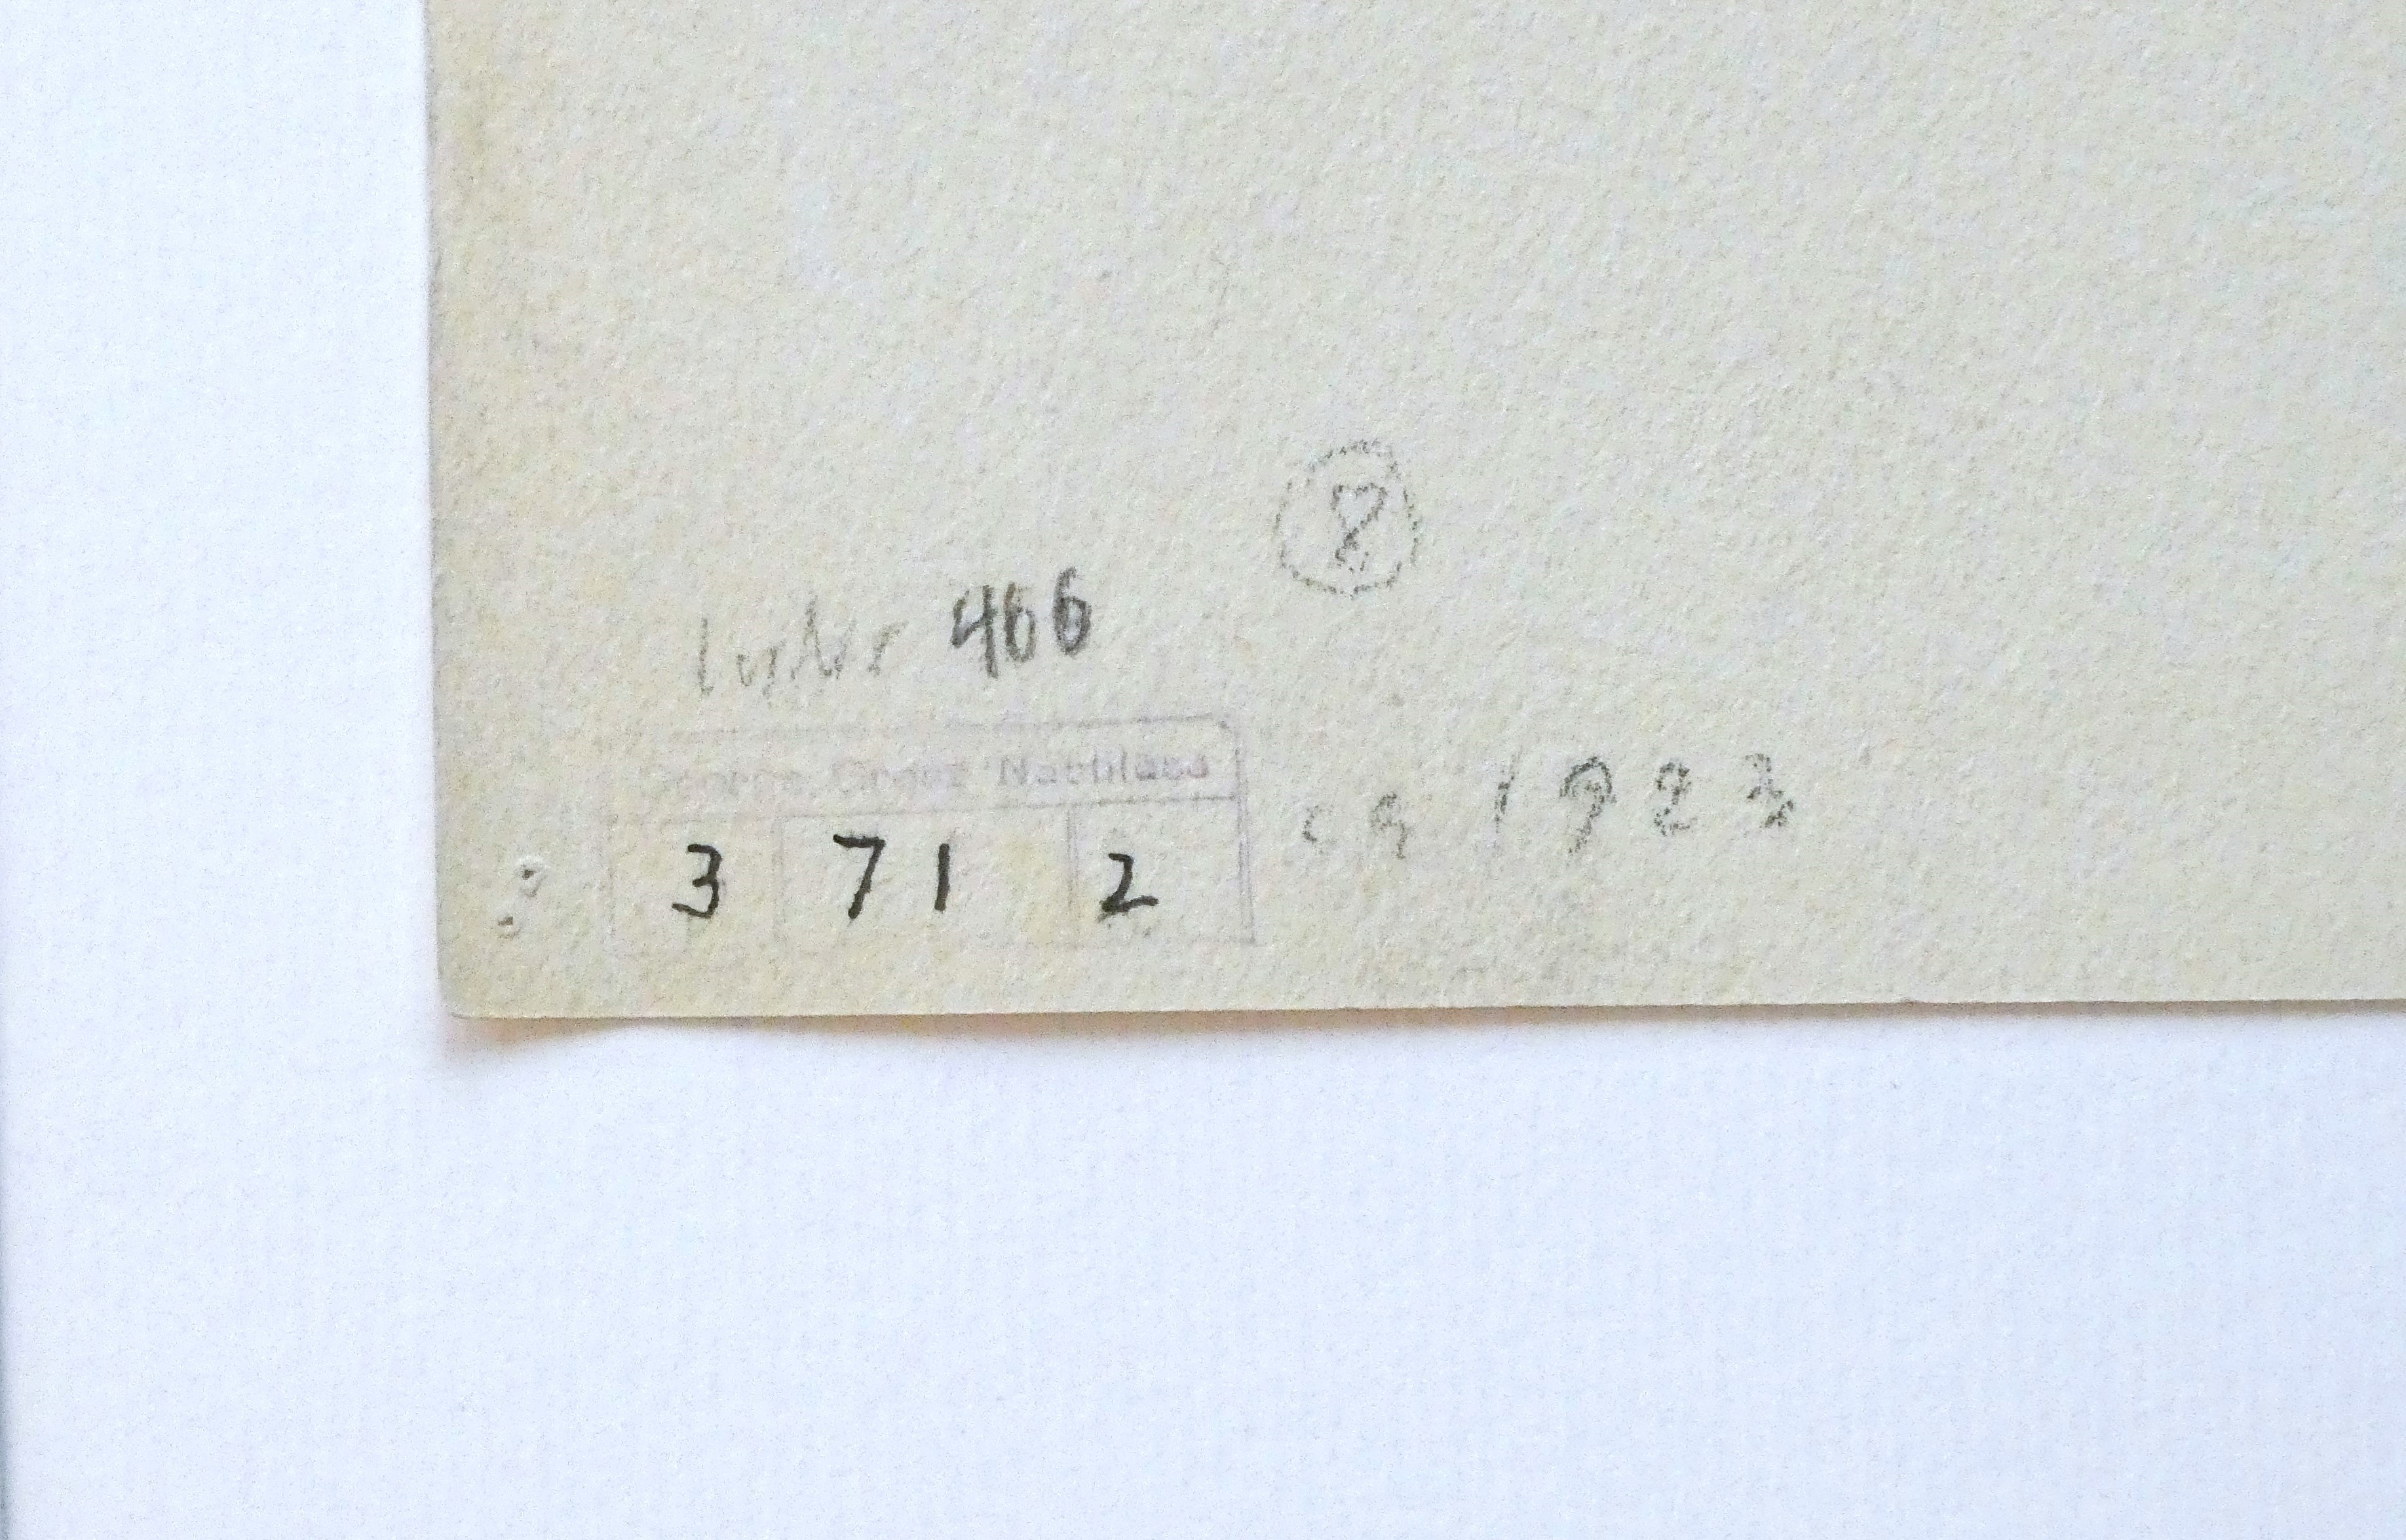 8
InvNr 466
George Grosz Nachlass
ca 1923
3 71 2